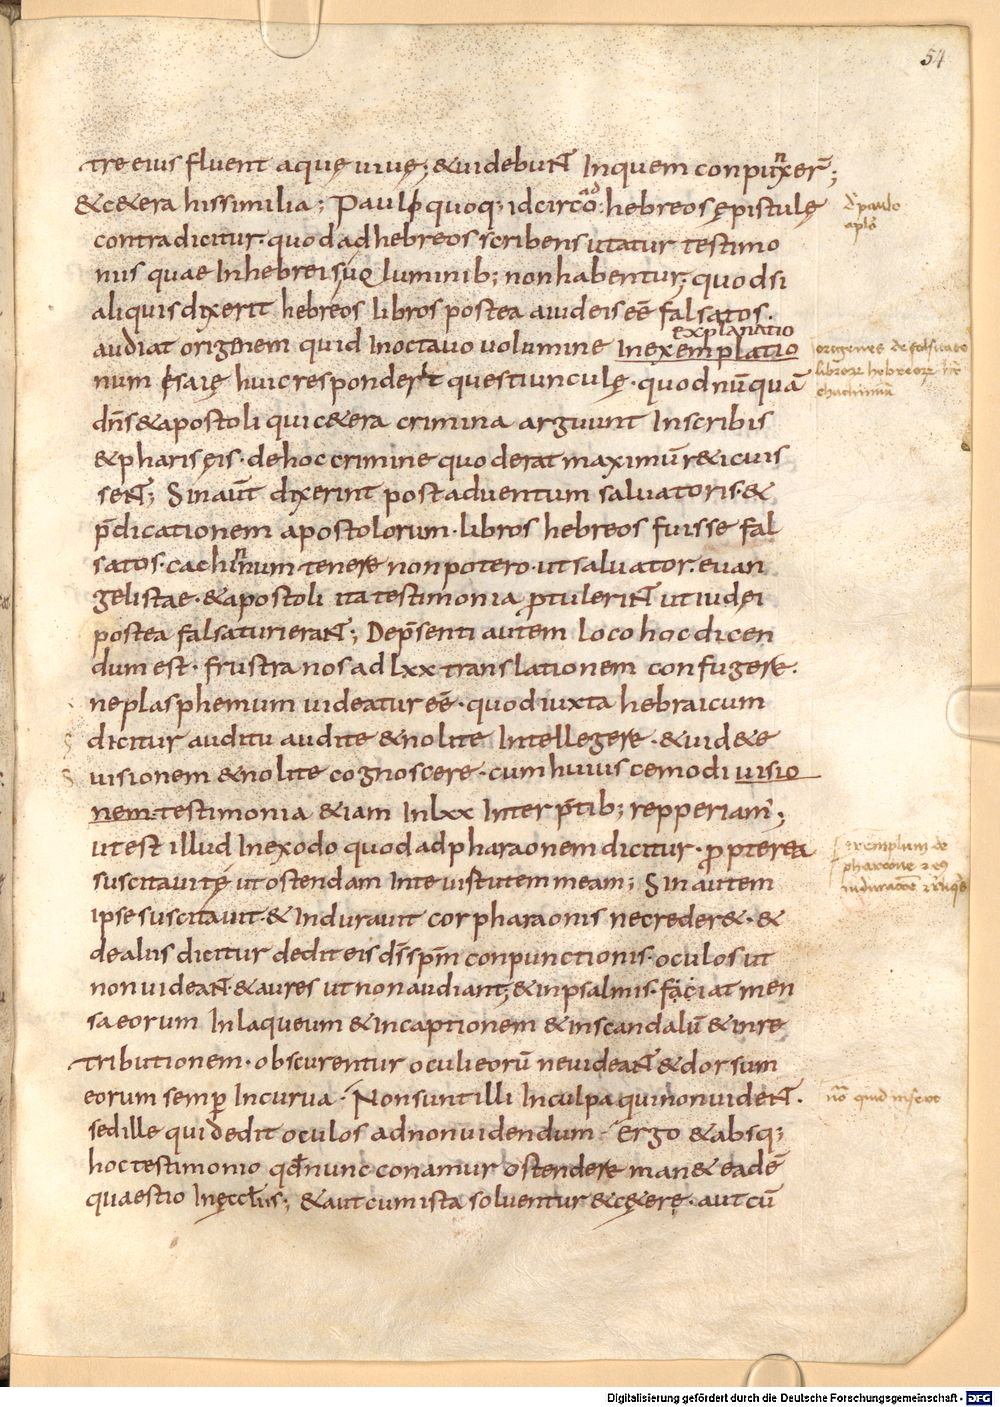 54
tre eius fluent aquę uiuę; & uidebunt In quem conpunxer̄;
& c&era his similia; Paulus quoq; idcirco ad hebreos ępistulę
contradicitur· quod ad hebreos scribens utatur testimo
niis quae In hebreis uoluminib; non habentur; quod si
aliquis dixerit hebreos libros postea a iudeis eē falsatos·
explanatio
audiat origenem quid In octauo uolumine In exemplatio
num esaię huic responderit questiunculę· quod nūquā
dn̄s & apostoli qui c&era crimina arguunt In scribis
& pharisęis· de hoc crimine quod erat maximū r&icuis
sent; Sin aūt dixerint post aduentum saluatoris· &
p̄dicationem apostolorum· libros hebreos fuisse fal
satos· cachinnum tenere non potero· ut saluator· euan
gelistae· & apostoli ita testimonia ꝓtulerint ut iudęi
postea falsaturi erant; De p̄senti autem loco hoc dicen
dum est· frustra nos ad lxx translationem confugere·
ne plasphemum uideatur eē· quod iuxta hebraicum
dicitur auditu audite & nolite Intellegere· & uid&e
uisionem & nolite cognoscere· cum huiuscemodi uisio
nem testimonia &iam In lxx Interp̄tib; repperiam̄;
ut est illud In exodo quod ad pharaonem dicitur· ꝓpterea
suscitaui tę ut ostendam In te uirtutem meam; Sin autem
ipse suscitauit· & Indurauit cor pharaonis ne creder&· &
de aliis dicitur dedit eis d̄s sp̄m conpunctionis· oculos ut
non uideant· & aures ut non audiant; & in psalmis· faciat men
sa eorum In laqueum & in captionem & in scandalū & in re
tributionem· obscurentur oculi eorū ne uideant & dorsum
eorum semꝑ Incurua· Non sunt illi In culpa qui non uident·
sed ille qui dedit oculos ad non uidendum· Ergo & absq;
hoc testimonio qđ nunc conamur ostendere man& eadē
quaestio In ęccl̄iis; & aut cum ista soluentur & c&ere· aut cū
paulo
aplō
origenes de falsitate
libroꝝ hebreoꝝ
exēmplum de
pharaone
Digitalisierung gefördert durch die Deutsche Forschungsgemeinschaft - DFG